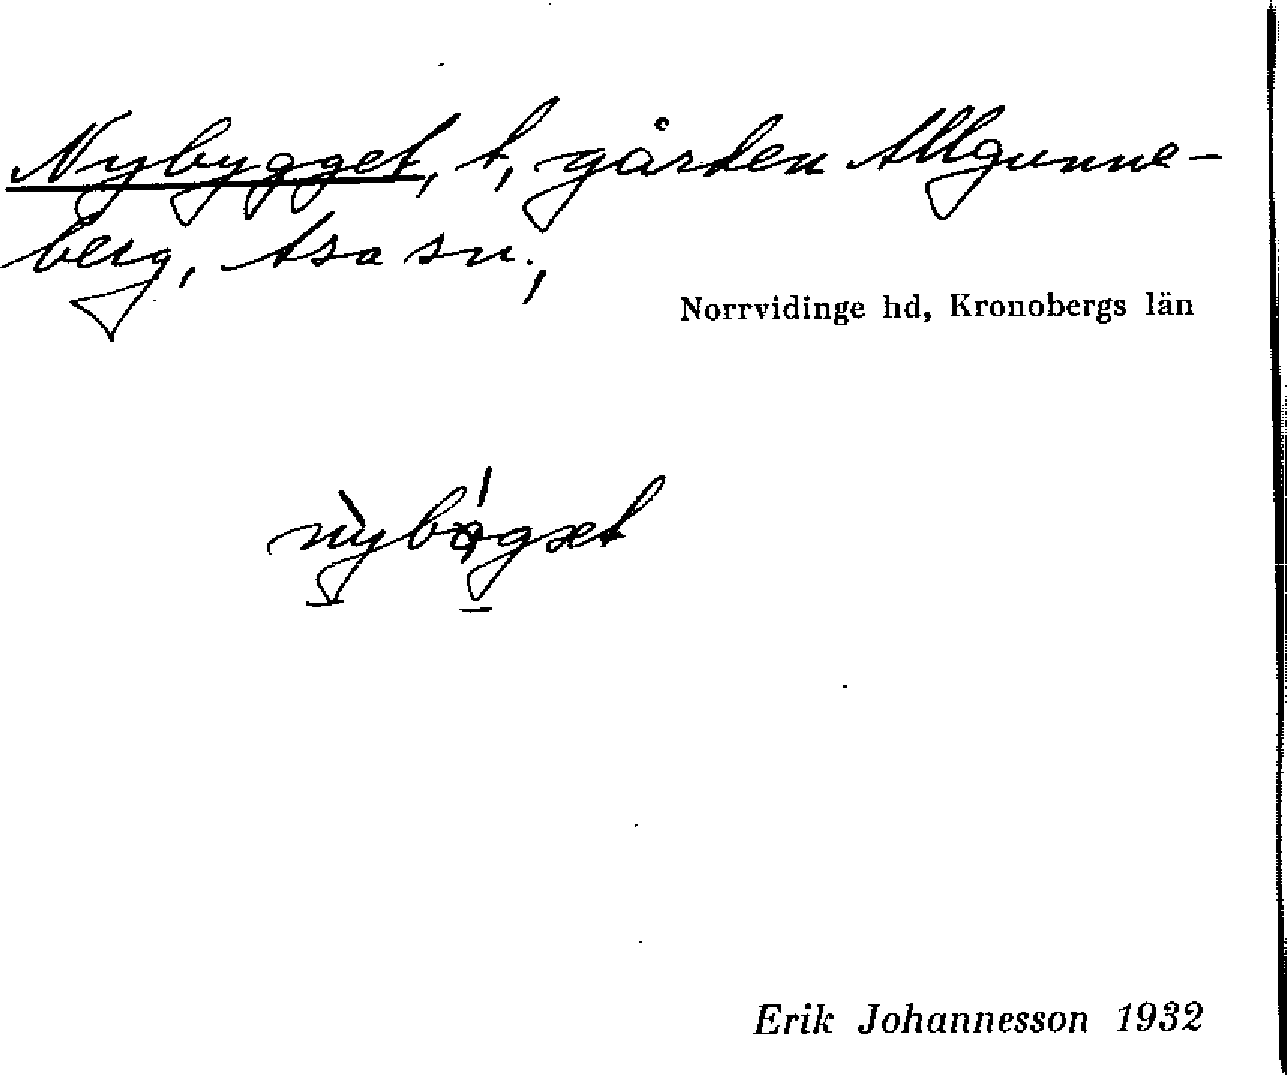 Nybygget, t, gården Allgunne-
berg, Asa sn.,
Norrvidinge hd, Kronobergs län
Erik Johannesson 1932